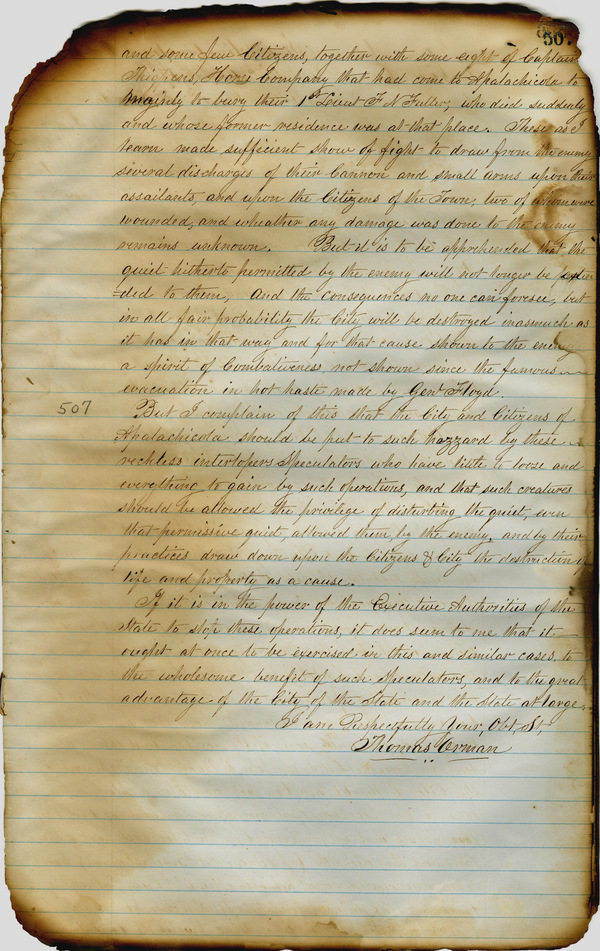 50
and some few Citizens, together with some eight of Captain
Thigpens, Horse Company that had come to Apalachicola to
mainly to bury their 1st Lieut T N Fuller; who died suddenly
and whose former residence was at that place. These as I
learn made sufficient show of fight to draw from the enemy
several discharges of their Cannon and small arms upon their
assailants, and upon the Citizens of the Town; two of whom were
wounded, and wheather any damage was done to the enemy
remains unknown. But it is to be apprehended that the
quiet hitherto permitted by the enemy will not longer be exten
=ded to them, and the consequences no one can foresee, but
in all fair probability the City will be destroyed inasmuch as
it has in that way and for that cause shown to the enemy
a spirit of Combativeness not shown since the famous
evacuation in hot haste made by Genl Floyd.
507
But I complain of this that the City and Citizens of
Apalachicola should be put to such hazzard by these
reckless interlopers Speculators who have little to loose and
everything to gain by such operations, and that such creatures
should be allowed the privilege of disturbing the quiet, even
that permissive quiet, allowed them, by the enemy, and by their
practices draw down upon the Citizens & City the destruction of
life and property as a cause.
If it is in the power of the Executive Authorities of the
State to stop these operations, it does seem to me that it
ought at once to be exercised in this and similar cases, to
the wholesome benefit of such Speculators, and to the great
advantage of the City of the State and the State at large.
I am Respectfully Your, Obt, St,
Thomas Orman